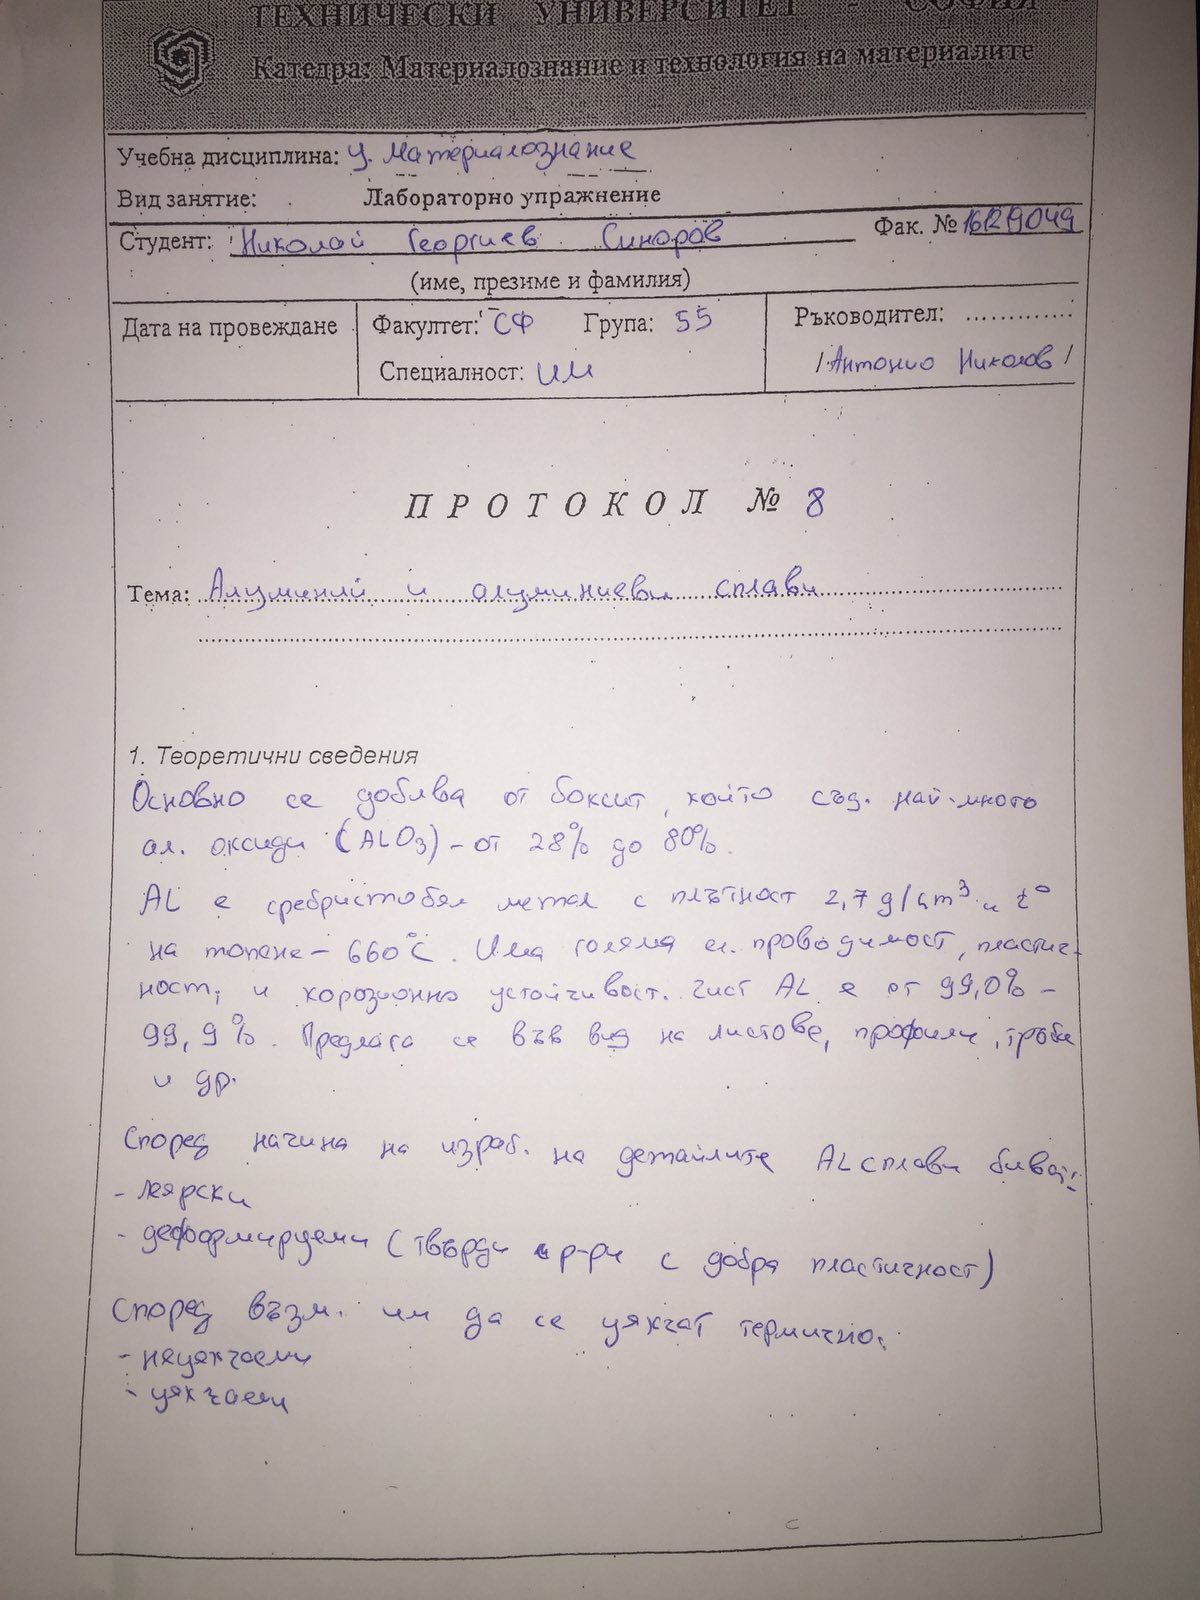 ТЕХНИЧЕСКИ УНИВЕРСИТЕТ - СОФИЯ
Катедра: Материалознание и технология на материалите
Учебна дисциплина: У. Материалознание
Вид занятие: Лабораторно упражнение
Студент: Николай Георгиев Синоров Фак. №
(име, презиме и фамилия)
Дата на провеждане Факултет: СФ Група: 55 Ръководител: ............
Специалност: ИМ /Антонио Николов/
ПРОТОКОЛ № 8
Тема: Алуминий и алуминиеви сплави
1. Теоретични сведения
Основно се добива от боксит, който съд. най-много
ал. оксиди (ALO3) - от 28% до 80%.
AL е сребристобял метал с плътност 2,7 g/cm3 и t°
на топене - 660°C. Има голяма ел. проводимост, пластич-
ност, и корозионна устойчивост. Чист AL е от 99,0% -
99,9%. Предлага се във вид на листове, профили, тръби
и др.
Според начина на израб. на детайлите AL сплави биват:
- леярски
- деформируеми (твърди р-ри с добра пластичност)
Според възм. им да се уякчат термично:
- неуякчаеми
- уякчаеми